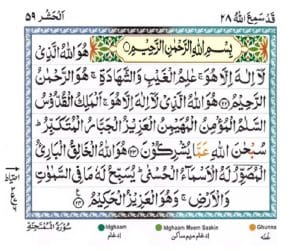 قَدْ سَمِعَ اللهُ ٢٨
اَلْحَشْر ٥٩
بِسْمِ اللهِ الرَّحْمٰنِ الرَّحِيْمِ
هُوَ اللهُ الَّذِىْ
لَآ اِلٰهَ اِلَّا هُوَ ۚ عٰلِمُ الْغَيْبِ وَالشَّهَادَةِ ۚ هُوَ الرَّحْمٰنُ
الرَّحِيْمُ ﴿٢٢﴾ هُوَ اللهُ الَّذِىْ لَآ اِلٰهَ اِلَّا هُوَ ۚ اَلْمَلِكُ الْقُدُّوْسُ
السَّلٰمُ الْمُؤْمِنُ الْمُهَيْمِنُ الْعَزِيْزُ الْجَبَّارُ الْمُتَكَبِّرُ ؕ
سُبْحٰنَ اللهِ عَمَّا يُشْرِكُوْنَ ﴿٢٣﴾ هُوَ اللهُ الْخَالِقُ الْبَارِئُ
الْمُصَوِّرُ لَهُ الْاَسْمَآءُ الْحُسْنٰى ؕ يُسَبِّحُ لَهٗ مَا فِى السَّمٰوٰتِ
وَالْاَرْضِ ۚ وَهُوَ الْعَزِيْزُ الْحَكِيْمُ ﴿٢٤﴾
سُوْرَةُ الْمُمْتَحِنَةِ
Idghaam
ادغام
Idghaam Meem Saakin
ادغام میم ساکن
Ghunna
غنہ